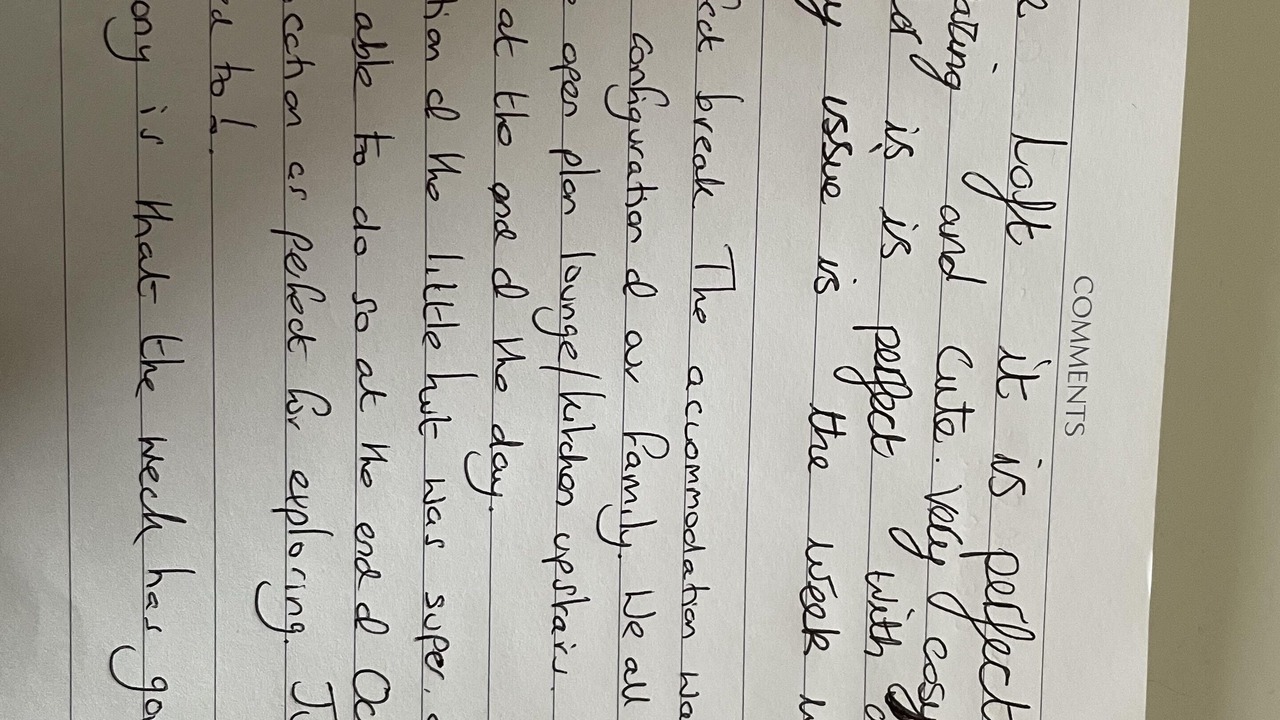 COMMENTS
Loft it is perfect
and cute. Very cosy
is is perfect with
issue is the week
break. The accommodation
configuration of our family. We all
open plan lounge/kitchen upstairs.
at the end of the day.
of the little hut was super.
able to do so at the end of
as perfect for exploring.
to!.
is that the week has